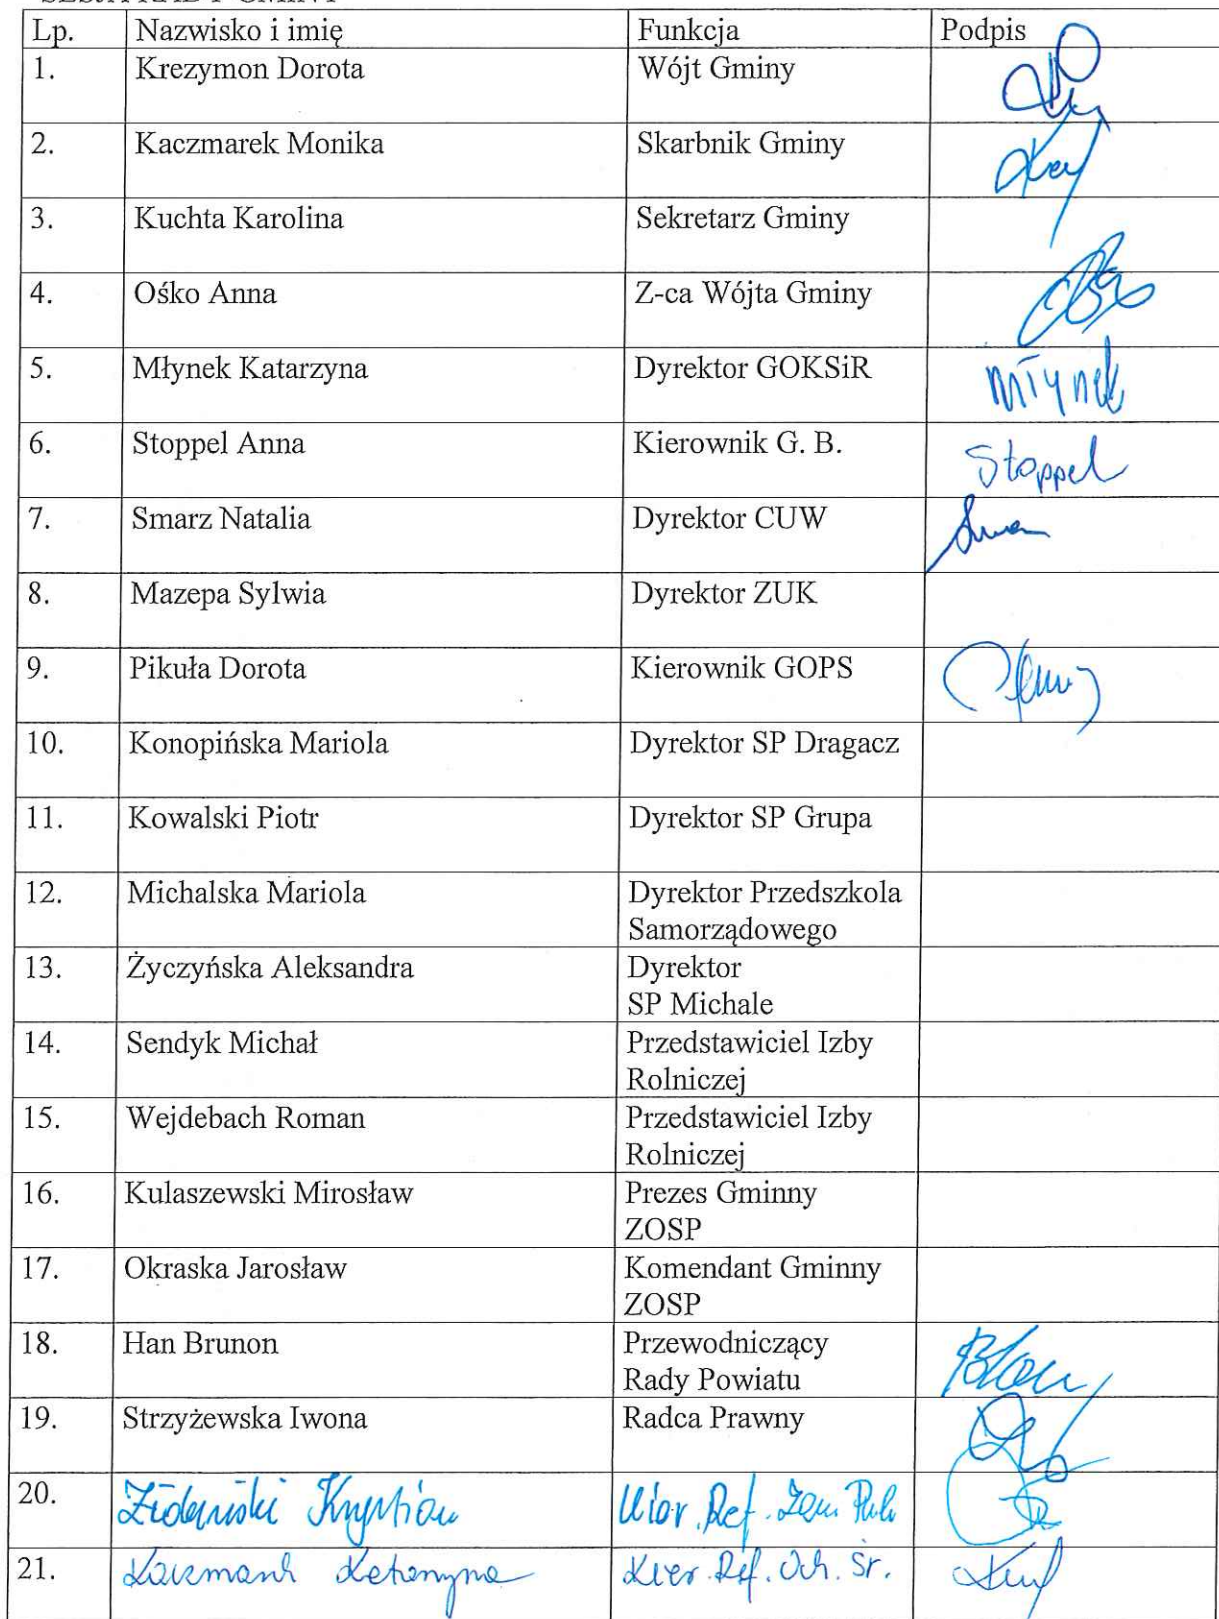 SESJA RADY GMINY
Lp. Nazwisko i imię Funkcja Podpis
1. Krezymon Dorota Wójt Gminy
2. Kaczmarek Monika Skarbnik Gminy
3. Kuchta Karolina Sekretarz Gminy
4. Ośko Anna Z-ca Wójta Gminy
5. Młynek Katarzyna Dyrektor GOKSiR Młynek
6. Stoppel Anna Kierownik G. B. Stoppel
7. Smarz Natalia Dyrektor CUW
8. Mazepa Sylwia Dyrektor ZUK
9. Pikuła Dorota Kierownik GOPS
10. Konopińska Mariola Dyrektor SP Dragacz
11. Kowalski Piotr Dyrektor SP Grupa
12. Michalska Mariola Dyrektor Przedszkola
Samorządowego
13. Życzyńska Aleksandra Dyrektor
SP Michale
14. Sendyk Michał Przedstawiciel Izby
Rolniczej
15. Wejdebach Roman Przedstawiciel Izby
Rolniczej
16. Kulaszewski Mirosław Prezes Gminny
ZOSP
17. Okraska Jarosław Komendant Gminny
ZOSP
18. Han Brunon Przewodniczący BHan
Rady Powiatu
19. Strzyżewska Iwona Radca Prawny
20. Krystian Ref. Zam. Publ.
21. Kaczmarek Katarzyna Kier. Ref. Och. Śr.